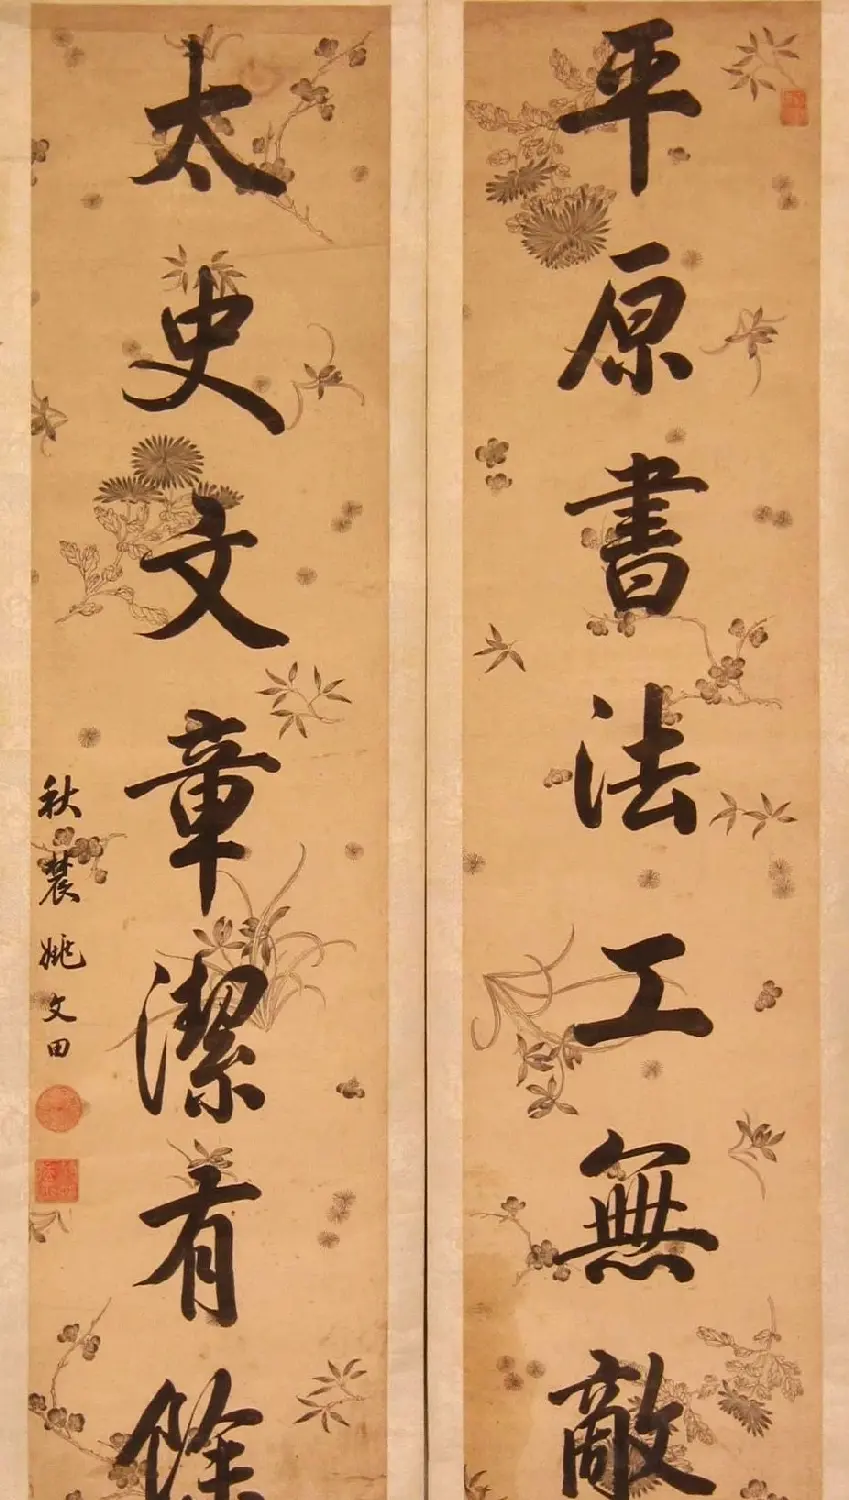 平原書法工無敵
太史文章潔有餘
秋農姚文田